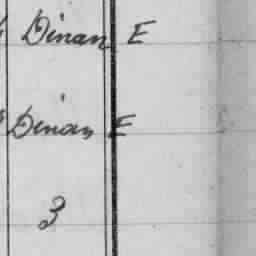 Dinan E
Dinan E
3